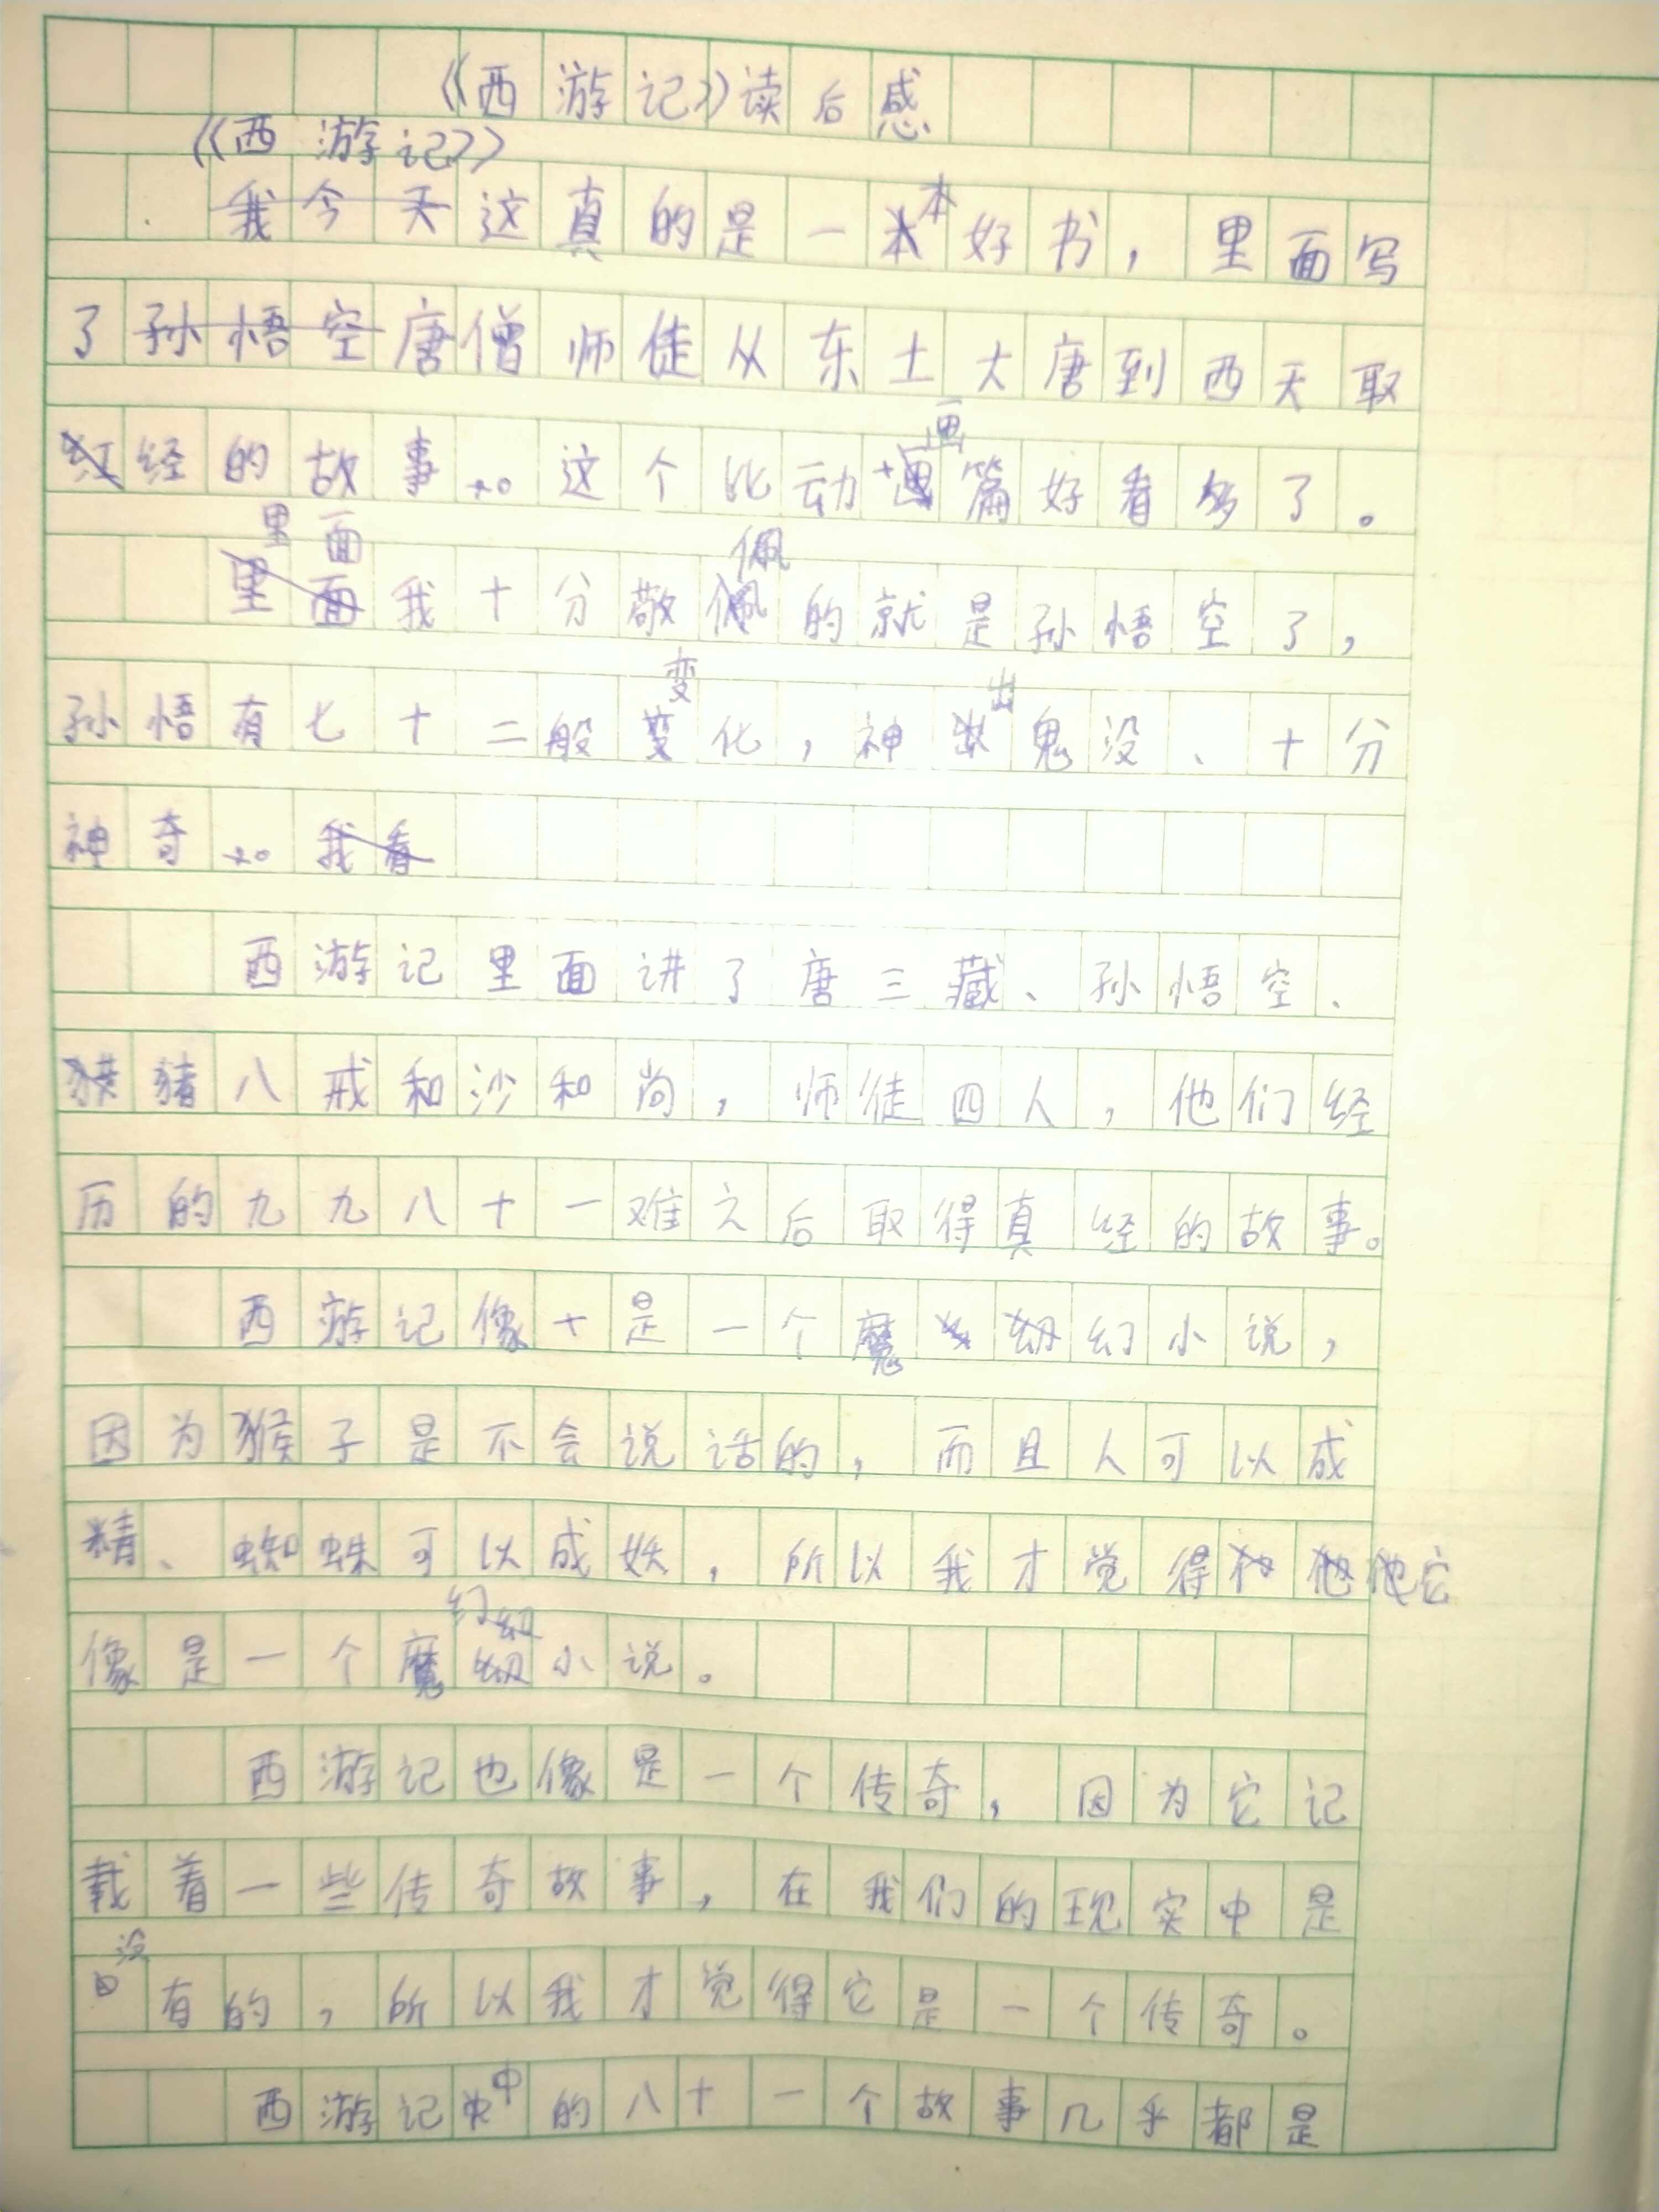 《西游记》读后感
《西游记》
这真的是一本好书，里面写
了唐僧师徒从东土大唐到西天取
经的故事。这个比动画篇好看多了。
里面我十分敬佩的就是孙悟空了，
孙悟有七十二般变化，神出鬼没、十分
神奇。
西游记里面讲了唐三藏、孙悟空、
猪八戒和沙和尚，师徒四人，他们经
历的九九八十一难之后取得真经的故事。
西游记像是一个魔幻小说，
因为猴子是不会说话的，而且人可以成
精、蜘蛛可以成妖，所以我才觉得它
像是一个魔幻小说。
西游记也像是一个传奇，因为它记
载着一些传奇故事，在我们的现实中是
没有的，所以我才觉得它是一个传奇。
西游记中的八十一个故事几乎都是